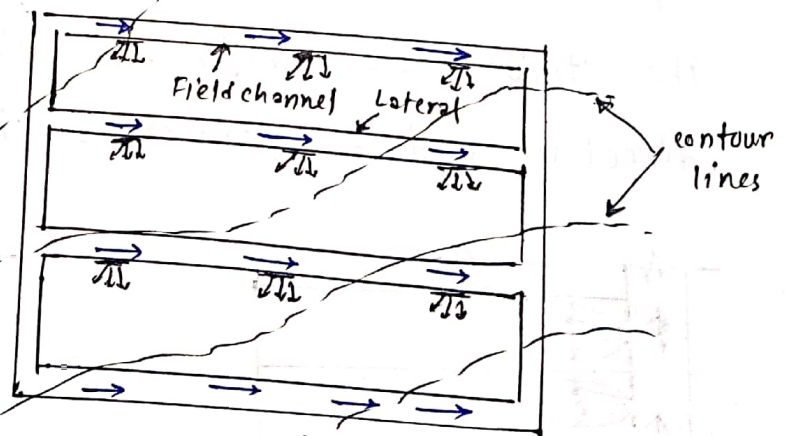 Field channel
Lateral
contour
lines